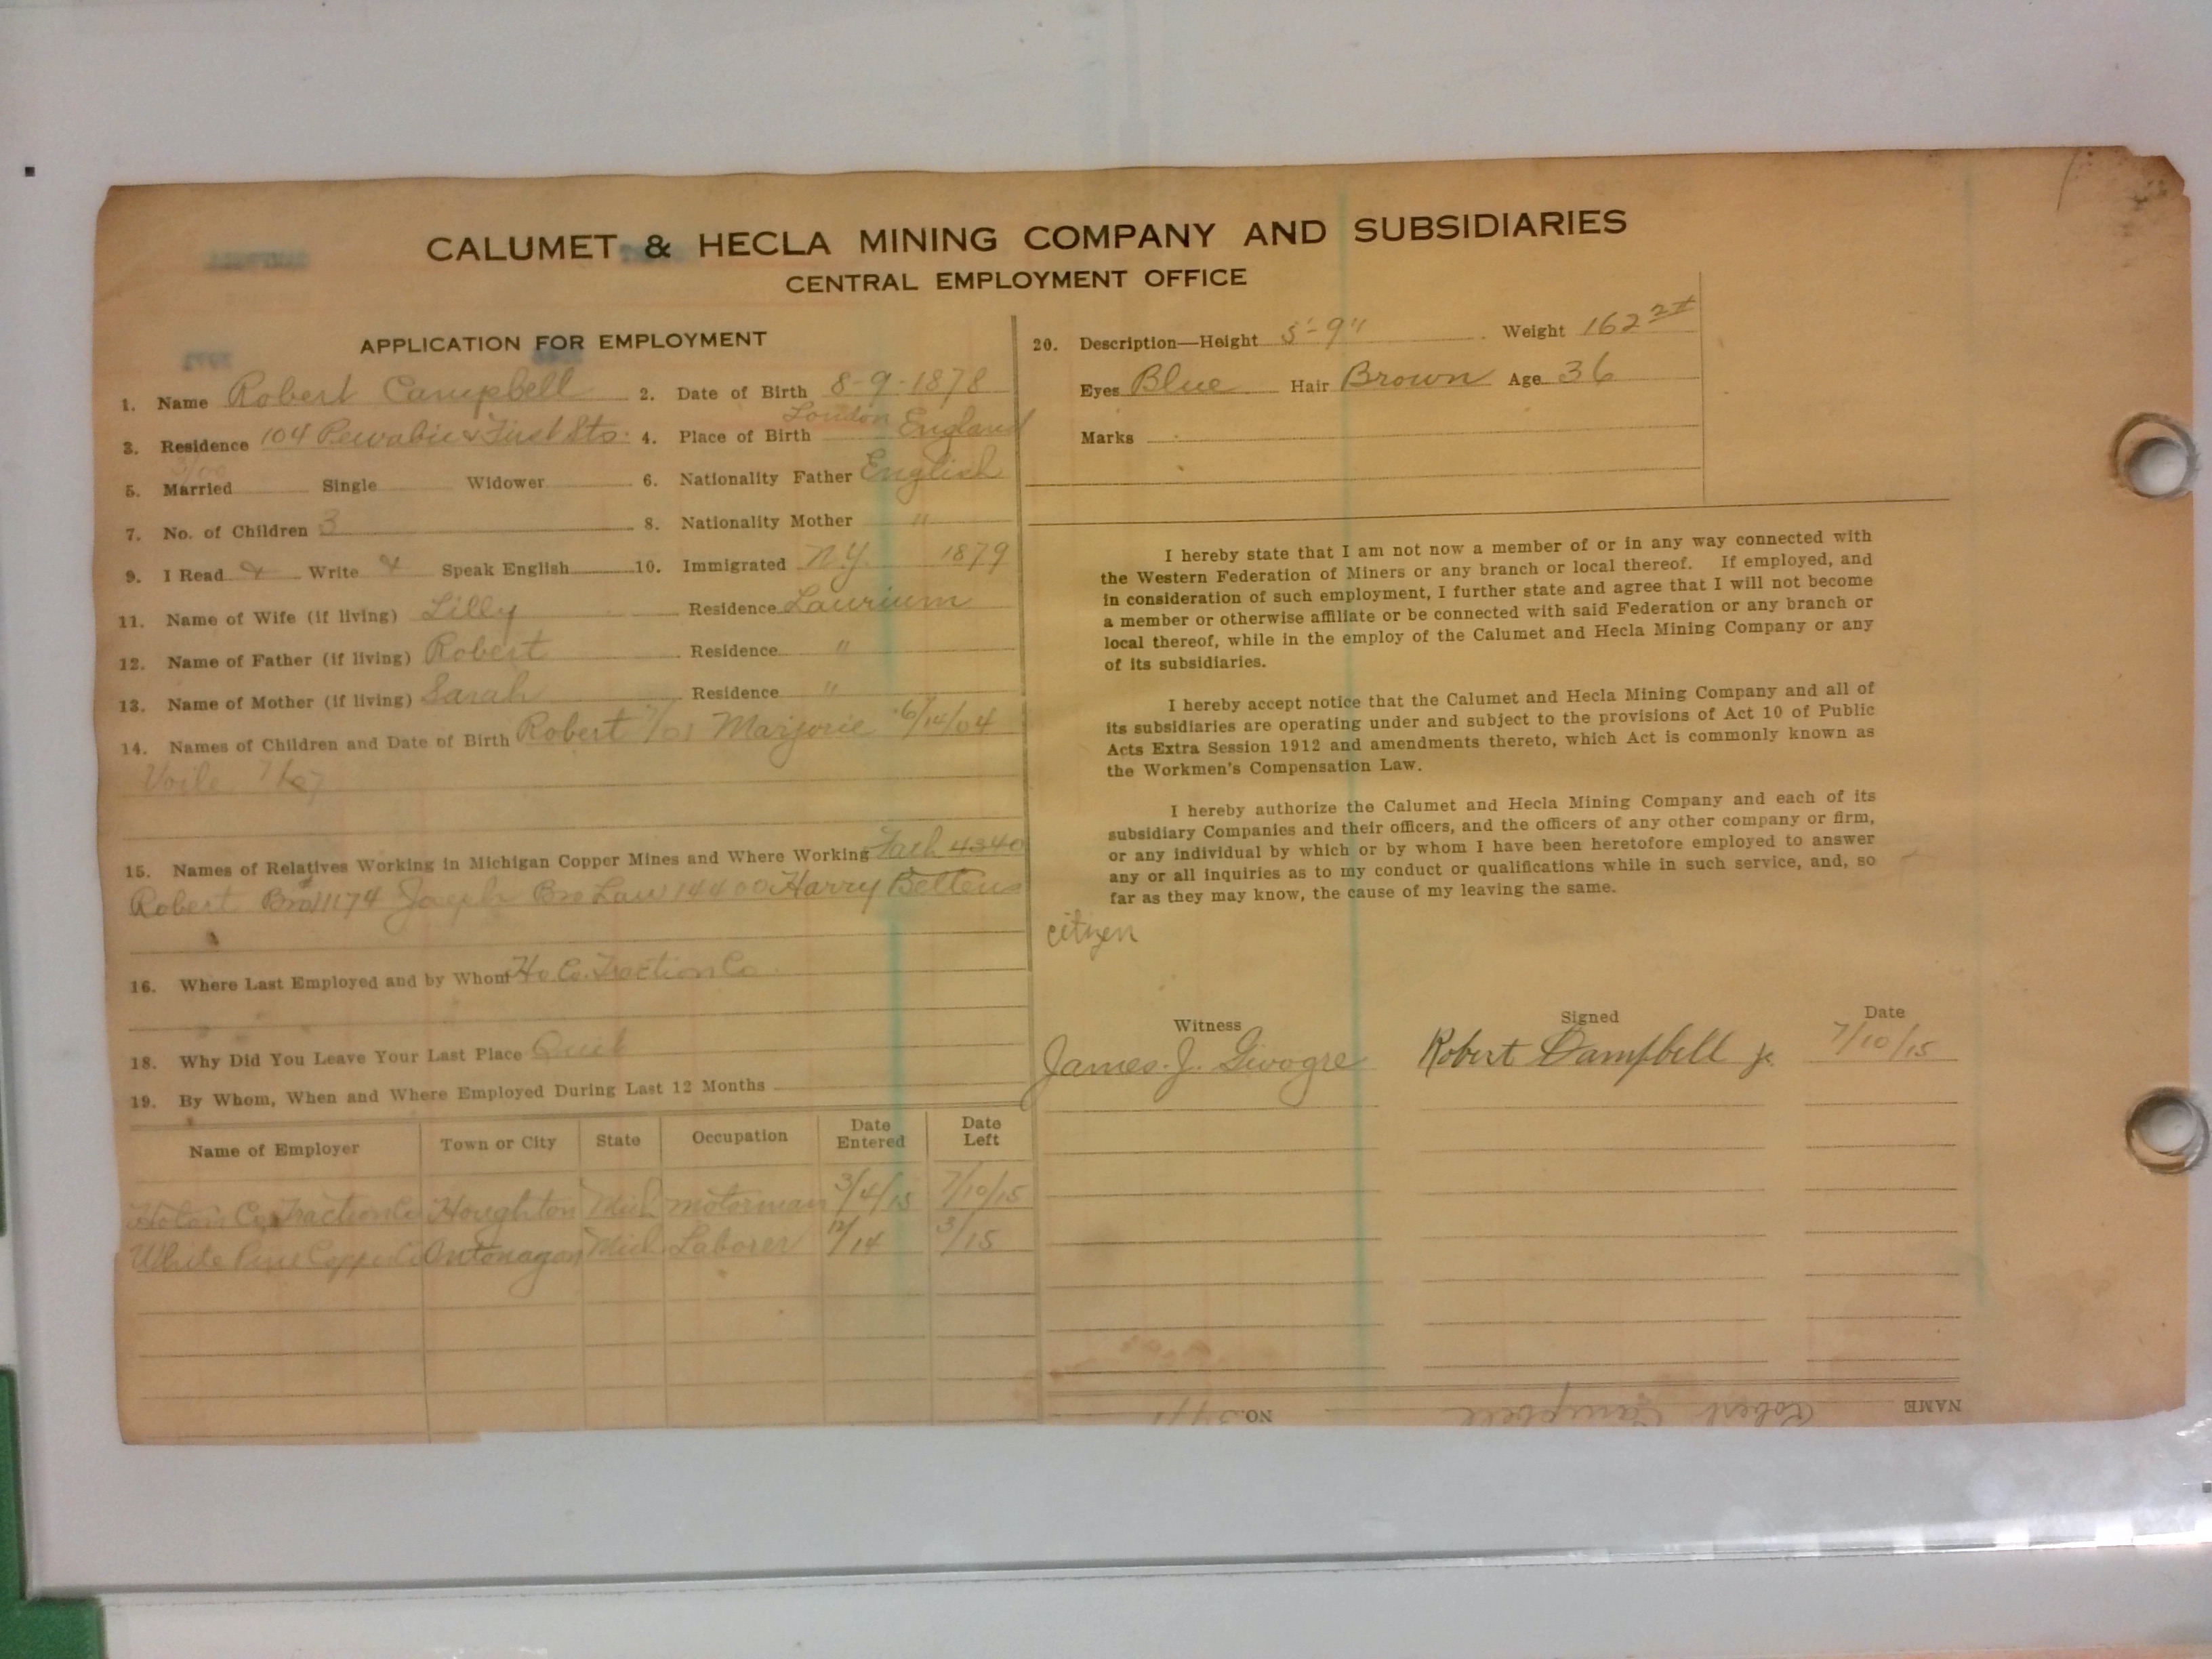 CALUMET & HECLA MINING COMPANY AND SUBSIDIARIES
CENTRAL EMPLOYMENT OFFICE
APPLICATION FOR EMPLOYMENT
1. Name Robert Campbell 2. Date of Birth 8-9-1878
3. Residence 104 Pewabic & First Sts. 4. Place of Birth London England
5. Married Single Widower 6. Nationality Father English
7. No. of Children 3 8. Nationality Mother "
9. I Read Write Speak English 10. Immigrated N.Y. 1879
11. Name of Wife (if living) Lilly Residence Laurium
12. Name of Father (if living) Robert Residence "
13. Name of Mother (if living) Sarah Residence "
14. Names of Children and Date of Birth Robert Marjorie 6/14/04
15. Names of Relatives Working in Michigan Copper Mines and Where Working Fath 4340
Robert Bro 11174 Joseph Bro Law 14400 Harry
16. Where Last Employed and by Whom Ho. Co. Traction Co.
18. Why Did You Leave Your Last Place Quit
19. By Whom, When and Where Employed During Last 12 Months
Name of Employer Town or City State Occupation Date Entered Date Left
Traction Co Houghton Mich motorman 3/4/15 7/10/15
White Pine Copper Co Ontonagon Mich Laborer 12/14 3/15
20. Description—Height 5'-9" Weight 162
Eyes Blue Hair Brown Age 36
Marks
I hereby state that I am not now a member of or in any way connected with
the Western Federation of Miners or any branch or local thereof. If employed, and
in consideration of such employment, I further state and agree that I will not become
a member or otherwise affiliate or be connected with said Federation or any branch or
local thereof, while in the employ of the Calumet and Hecla Mining Company or any
of its subsidiaries.
I hereby accept notice that the Calumet and Hecla Mining Company and all of
its subsidiaries are operating under and subject to the provisions of Act 10 of Public
Acts Extra Session 1912 and amendments thereto, which Act is commonly known as
the Workmen's Compensation Law.
I hereby authorize the Calumet and Hecla Mining Company and each of its
subsidiary Companies and their officers, and the officers of any other company or firm,
or any individual by which or by whom I have been heretofore employed to answer
any or all inquiries as to my conduct or qualifications while in such service, and, so
far as they may know, the cause of my leaving the same.
citizen
Witness Signed Date
James. J. Robert Campbell jr. 7/10/15
NAME Robert Campbell NO.